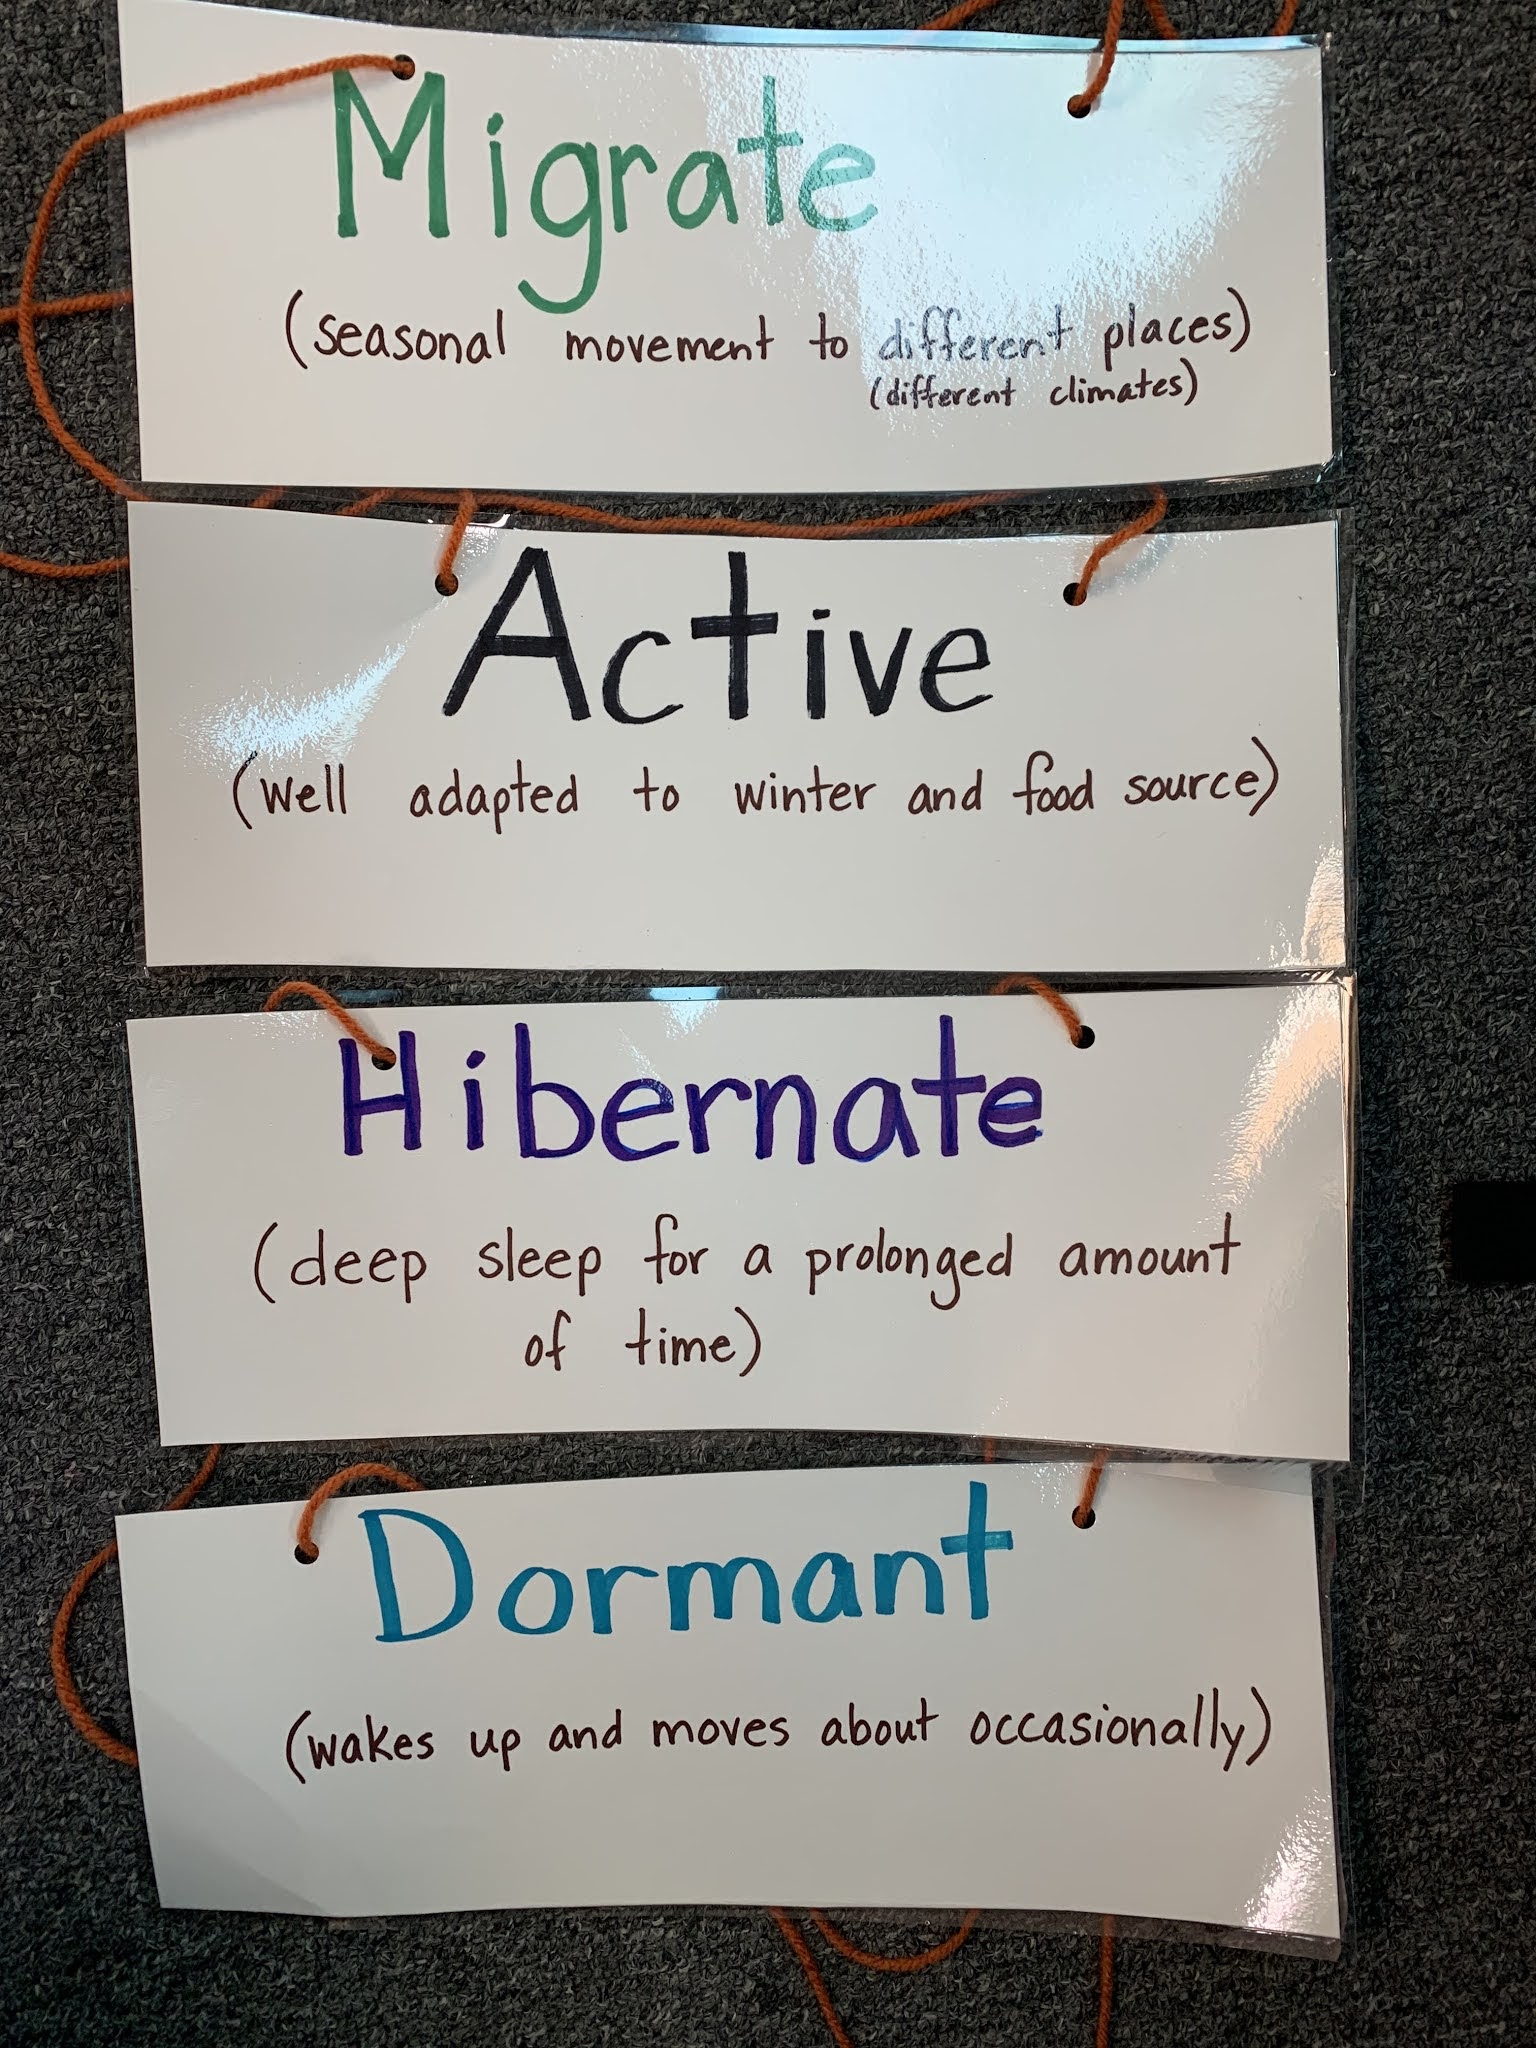 Migrate
(seasonal movement to different places)
(different climates)
Active
(well adapted to winter and food source)
Hibernate
(deep sleep for a prolonged amount
of time)
Dormant
(wakes up and moves about occasionally)